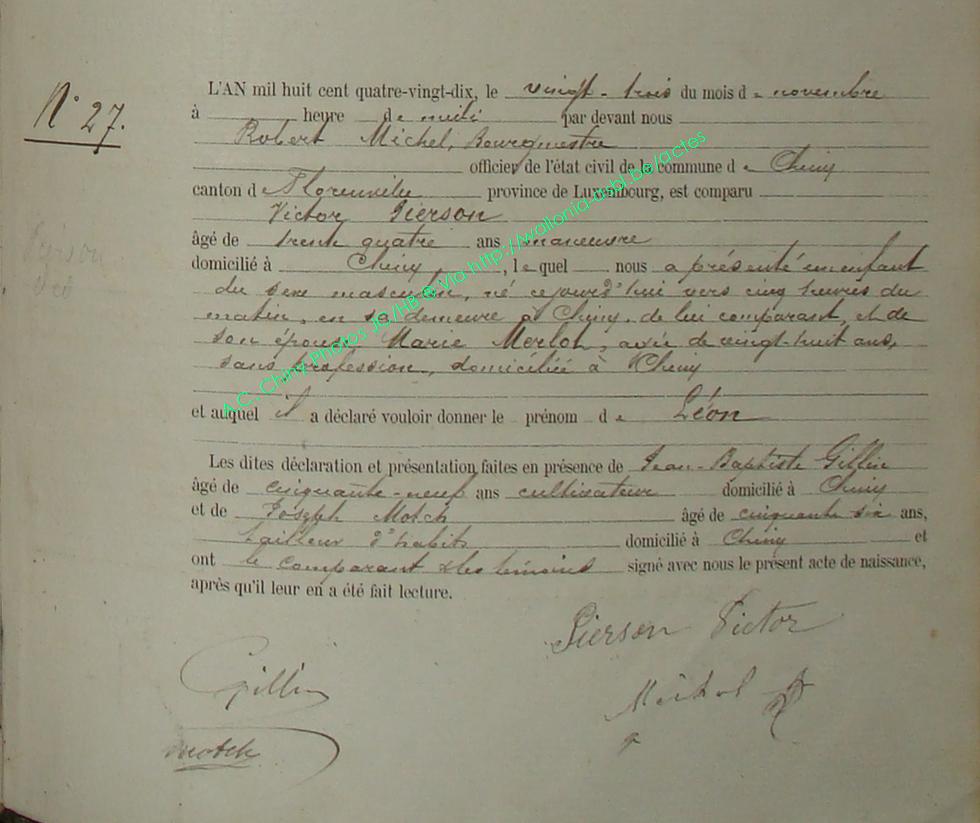 N° 27.
Pierson
Léo
L'AN mil huit cent quatre-vingt-dix, le vingt-trois du mois de novembre
à heure de midi par devant nous
Robert Michel, Bourgmestre
officier de l'état civil de la commune de Chiny
canton de Florenville province de Luxembourg, est comparu
Victor Pierson
âgé de trente quatre ans manœuvre
domicilié à Chiny, lequel nous a présenté un enfant
du sexe masculin, né cejourd'hui vers cinq heures du
matin, en sa demeure à Chiny, de lui comparant, et de
son épouse Marie Merlot, agée de vingt-huit ans,
sans profession, domiciliée à Chiny
et auquel il a déclaré vouloir donner le prénom de Léon
Les dites déclaration et présentation faites en présence de Jean-Baptiste Gillin
âgé de cinquante-neuf ans cultivateur domicilié à Chiny
et de Joseph Motch âgé de cinquante six ans,
tailleur d'habits domicilié à Chiny et
ont le comparant & les témoins signé avec nous le présent acte de naissance,
après qu'il leur en a été fait lecture.
Pierson Victor
Gillin
Michel R
Motch
A.C. Chiny Photos JG/HB © Via http://wallonia-asbl.be/actes